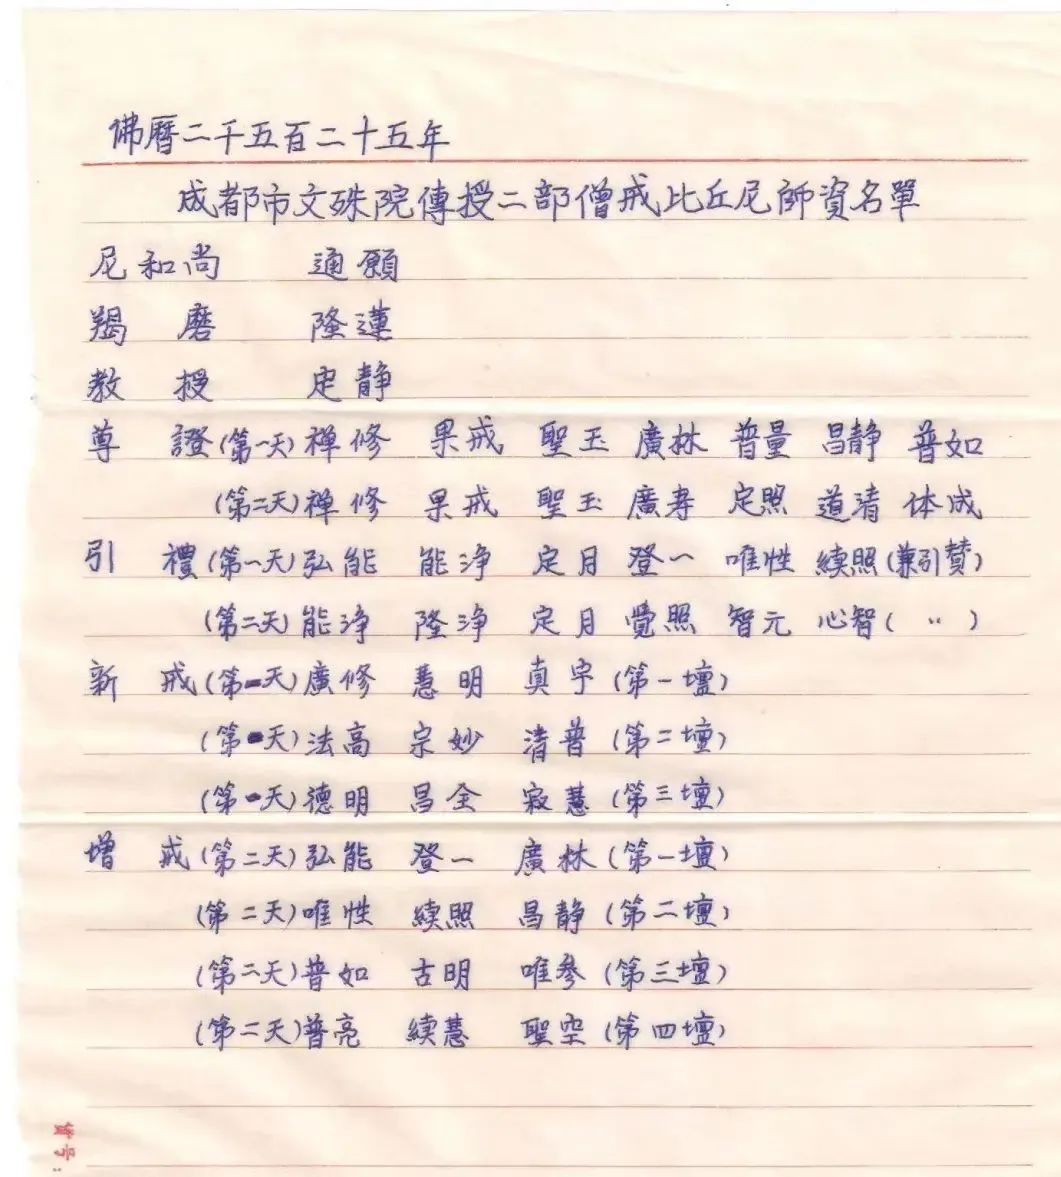 佛曆二千五百二十五年
成都市文殊院傳授二部僧戒比丘尼師資名單
尼和尚 通願
羯磨 隆蓮
教授 定静
尊證(第一天)禅修 果戒 聖玉 廣林 普量 昌静 普如
(第二天)禅修 果戒 聖玉 廣寿 定照 道清 体成
引禮(第一天)弘能 能净 定月 登一 唯性 續照(兼引赞)
(第二天)能净 隆净 定月 覺照 智元 心智( 〃 )
新戒(第一天)廣修 慧明 真宇(第一壇)
(第一天)法高 宗妙 清普(第二壇)
(第一天)德明 昌全 寂慧(第三壇)
增戒(第二天)弘能 登一 廣林(第一壇)
(第二天)唯性 續照 昌静(第二壇)
(第二天)普如 古明 唯參(第三壇)
(第二天)普亮 續慧 聖空(第四壇)